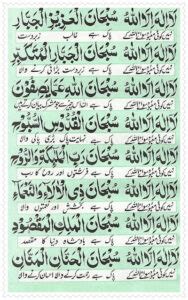 لا اله الا الله سبحان العزيز الجبار
نہیں کوئی معبود سوائے اللہ کے پاک ہے غالب زبردست
لا اله الا الله سبحان الجبار المتكبر
نہیں کوئی معبود سوائے اللہ کے پاک ہے زبردست بڑائی کرنے والا
لا اله الا الله سبحان الله عما يصفون
نہیں کوئی معبود سوائے اللہ کے پاک ہے
لا اله الا الله سبحان القدوس السبوح
نہیں کوئی معبود سوائے اللہ کے پاک ہے نہایت پاک
لا اله الا الله سبحان رب الملائكة والروح
نہیں کوئی معبود سوائے اللہ کے پاک ہے فرشتوں اور روح کا رب
لا اله الا الله سبحان ذي الآلاء والنعماء
نہیں کوئی معبود سوائے اللہ کے پاک ہے بخشش اور نعمتوں والا
لا اله الا الله سبحان الملك المقصود
نہیں کوئی معبود سوائے اللہ کے پاک ہے بادشاہ دنیا کا مقصد
لا اله الا الله سبحان الحنان المنان
نہیں کوئی معبود سوائے اللہ کے پاک ہے رحمت کرنے والا احسان کرنے والا